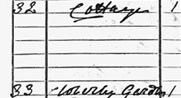 32 Cottage 1
33 Moberly Gardens 1